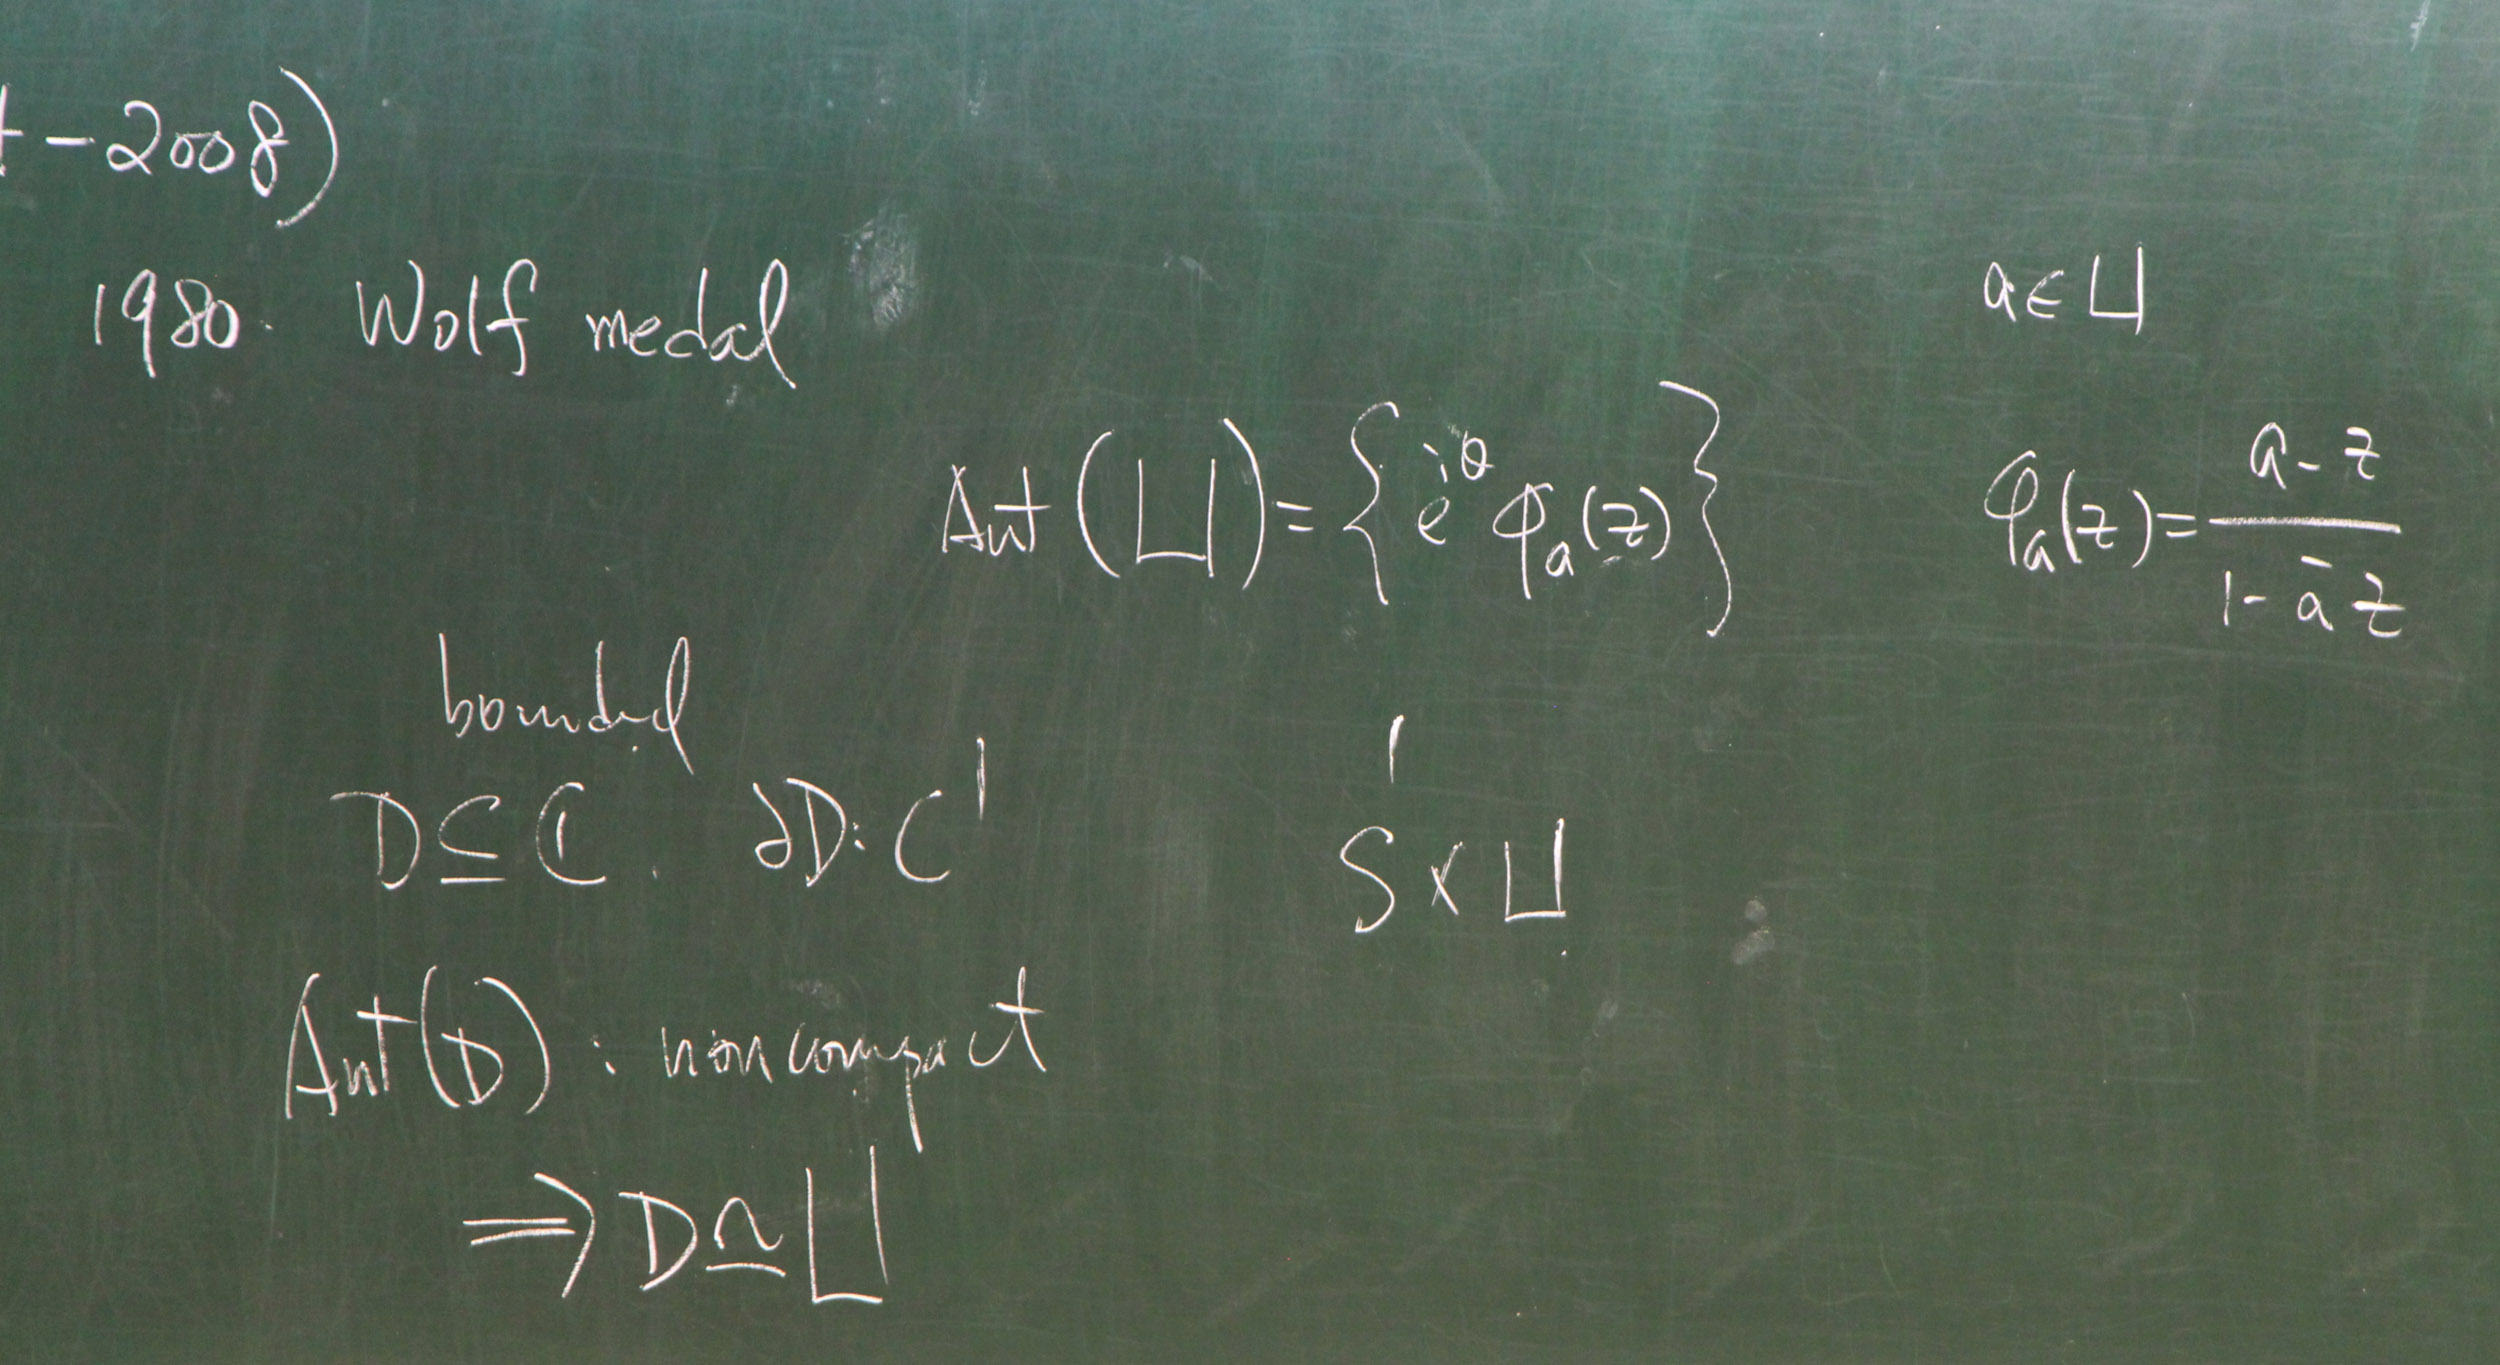 -2008)
1980. Wolf medal
a ∈ U
Aut (U) = { e^{iθ} φ_a(z) }
φ_a(z) = \frac{a - z}{1 - \bar{a} z}
bounded
D ⊆ ℂ. ∂D: C^1
S^1 × U
Aut(D) : noncompact
⇒ D ≃ U